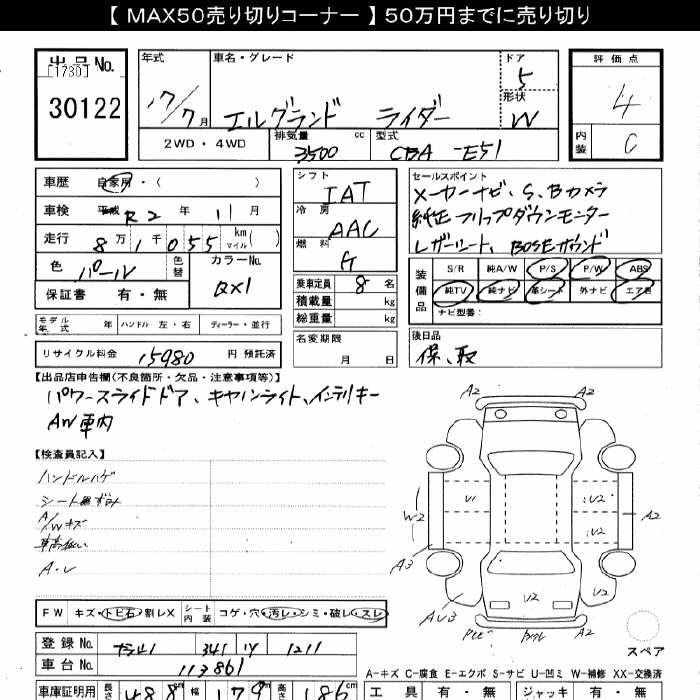 【 MAX50売り切りコーナー 】 50万円までに売り切り
出品No.
[1730]
30122
年式 17/7月
車名・グレード エルグランド ライダー
ドア 5
形状 W
評価点 4
内装 C
2WD・4WD
排気量 3500 cc
型式 CBA-E51
車歴 自家用・( )
車検 平成 R2 年 11 月
走行 8万1千055 km マイル( )
色 パール
色替
カラーNo. QX1
保証書 有・無
シフト IAT
冷房 AAC
燃料 G
乗車定員 8 名
積載量 kg
総重量 kg
セールスポイント
メーカーナビ、S、Bカメラ
純正フリップダウンモニター
レザーシート、BOSEサウンド
装備品 S/R 純A/W P/S P/W ABS
純TV 純ナビ 革シート 外ナビ エアB
ナビ型番:
モデル年式 年 ハンドル 左・右 ディーラー・並行
リサイクル料金 15980 円 預託済
名変期限 月 日
後日品
保、取
【出品店申告欄(不良箇所・欠品・注意事項等)】
パワースライドドア、キセノンライト、インテリキー
AW車内
【検査員記入】
ハンドルハゲ
A/Wキズ
車高低い
A2
A2
U1
U2
W2
U2
A2
A3
U2
AU3
A2
FW キズ・トビ石・割レX
シート内装 コゲ・穴・汚レ・シミ・破レ・スレ
スペア
登録No. 341 1211
車台No. 113861
車庫証明用 長さ 488cm 幅 179cm 高さ 186cm
A-キズ C-腐食 E-エクボ S-サビ U-凹ミ W-補修 XX-交換済
工具 有・無 ジャッキ 有・無